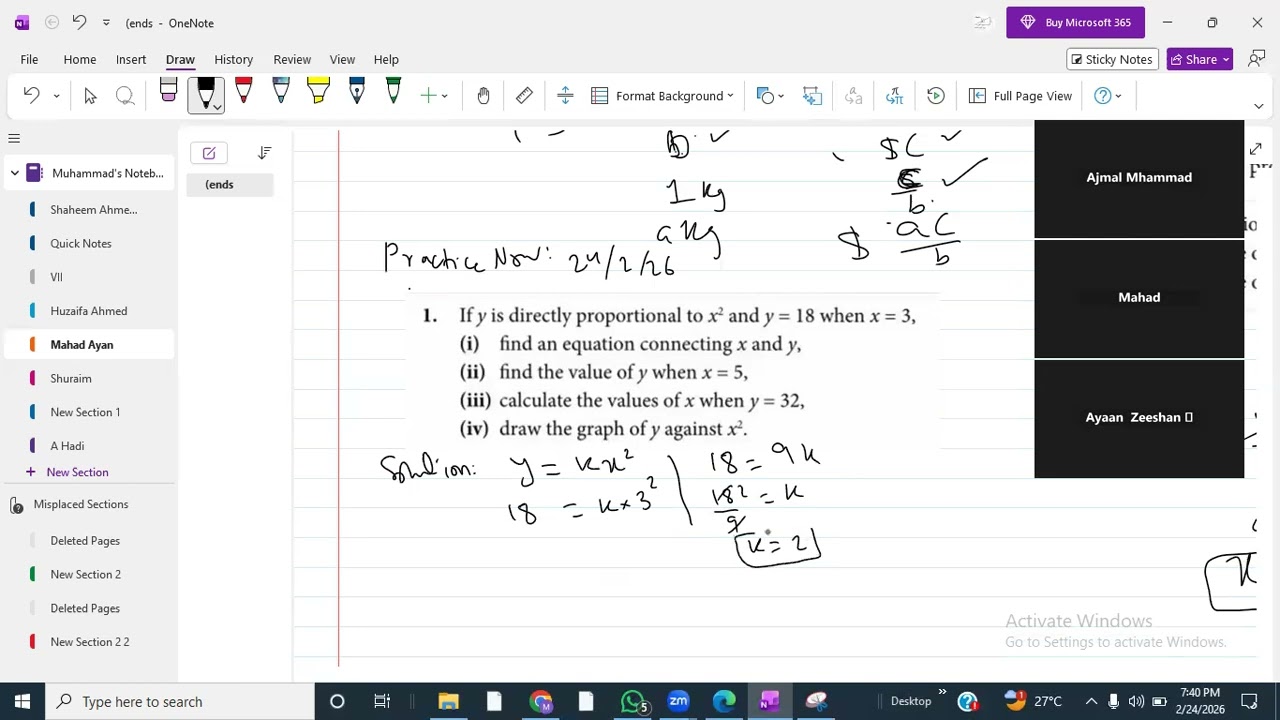 (ends - OneNote
Buy Microsoft 365
File Home Insert Draw History Review View Help
Sticky Notes Share
Format Background
Full Page View
Muhammad's Noteb...
(ends
Shaheem Ahme...
Quick Notes
VII
Huzaifa Ahmed
Mahad Ayan
Shuraim
New Section 1
A Hadi
New Section
Misplaced Sections
Deleted Pages
New Section 2
Deleted Pages
New Section 2 2
b. $C
1 kg c/b.
a kg $ aC/b
Practice Now: 24/2/26
1. If y is directly proportional to x² and y = 18 when x = 3,
(i) find an equation connecting x and y,
(ii) find the value of y when x = 5,
(iii) calculate the values of x when y = 32,
(iv) draw the graph of y against x².
Solution: y = kx² 18 = 9k
18 = k × 3² 18²/9 = k
k = 2
Ajmal Mhammad
Mahad
Ayaan Zeeshan
Activate Windows
Go to Settings to activate Windows.
Type here to search
5
zm
Desktop
27°C
7:40 PM
2/24/2026